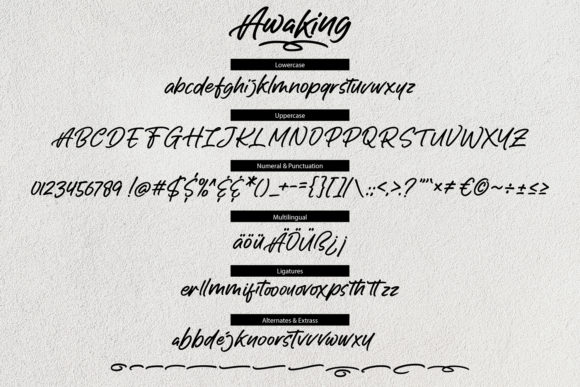 Awaking
Lowercase
abcdefghijklmnopqrstuvwxyz
Uppercase
ABCDEFGHIJKLMNOPQRSTUVWXYZ
Numeral & Punctuation
0123456789 !@#$%^&*()_+-={}[]|\:;<,>.?"'‘×≠€©~÷±≤≥
Multilingual
äöüÄÖÜß¿¡
Ligatures
erllmmifitooouovoxpsthttzz
Alternates & Extrass
abbdejknoorstuvwxy